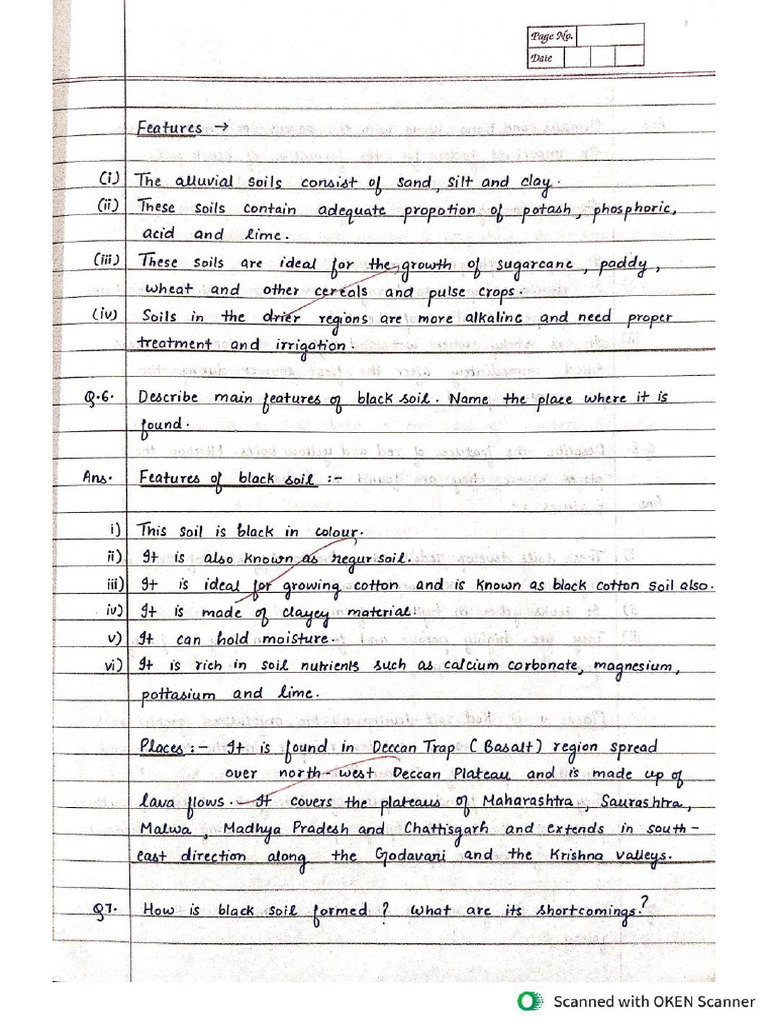 Page No.
Date
Features →
(i) The alluvial soils consist of sand, silt and clay.
(ii) These soils contain adequate propotion of potash, phosphoric,
acid and lime.
(iii) These soils are ideal for the growth of sugarcane, paddy,
wheat and other cereals and pulse crops.
(iv) Soils in the drier regions are more alkaline and need proper
treatment and irrigation.
Q.6. Describe main features of black soil. Name the place where it is
found.
Ans. Features of black soil :-
i) This soil is black in colour.
ii) It is also known as regur soil.
iii) It is ideal for growing cotton and is known as black cotton soil also.
iv) It is made of clayey material.
v) It can hold moisture.
vi) It is rich in soil nutrients such as calcium carbonate, magnesium,
pottasium and lime.
Places :- It is found in Deccan Trap (Basalt) region spread
over north-west Deccan Plateau and is made up of
lava flows. It covers the plateaus of Maharashtra, Saurashtra,
Malwa, Madhya Pradesh and Chattisgarh and extends in south-
east direction along the Godavari and the Krishna valleys.
Q7. How is black soil formed? What are its shortcomings?
Scanned with OKEN Scanner